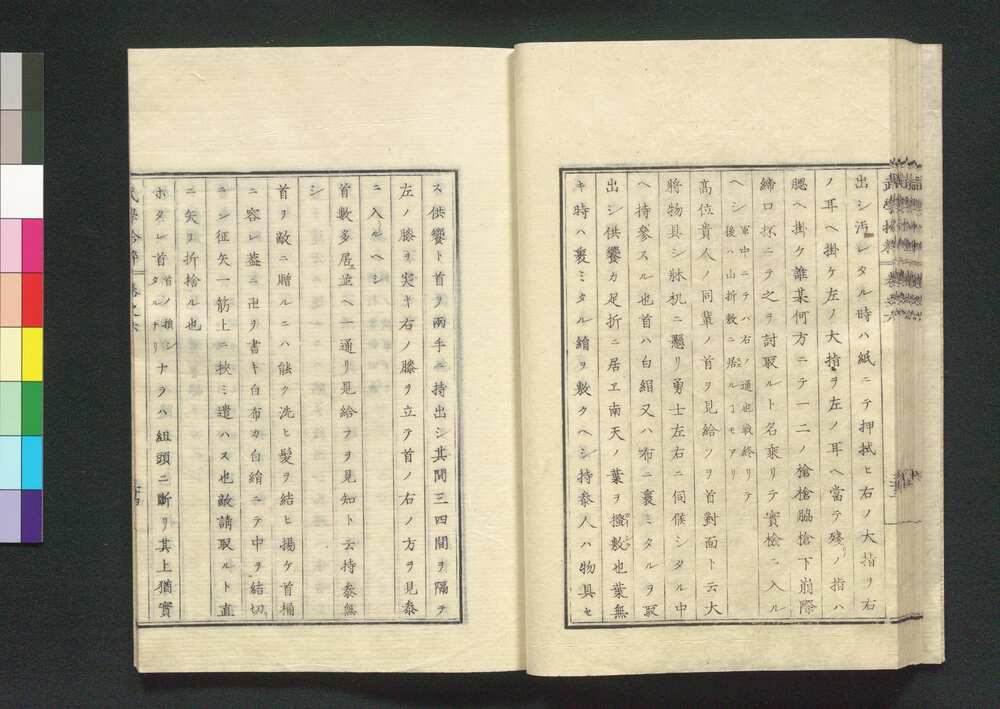 出シ汚レタル時ハ紙ニテ押拭ヒ右ノ大指ヲ右
ノ耳ヘ掛ケ左ノ大指ヲ左ノ耳ヘ當テ殘リノ指ハ
腮ヘ掛ケ誰某何方ニテ一二ノ槍槍脇槍下崩際
締口抔ニテ之ヲ討取ルト名乘リテ實檢ニ入ル
ヘシ軍中ニテハ右ノ通也戰終リテ
後ハ山折敷ニ居ルヿモアリ
高位貴人ノ同輩ノ首ヲ見給フヲ首對面ト云大
將物具シ牀机ニ懸リ勇士左右ニ伺候シタル中
ヘ持參スル也首ハ白絹又ハ布ニ裹ミタルヲ取
出シ供饗カ足折ニ居エ南天ノ葉ヲ搔敷也葉無
キ時ハ裹ミタル繪ヲ敷クヘシ持參人ハ物具セ
ス供饗ト首ヲ兩手ニ持出シ其間三四間ヲ隔テ
左ノ膝ヲ突キ右ノ膝ヲ立テ首ノ右ノ方ヲ見參
ニ入ルヘシ
首數多居並ヘ一通リ見給フヲ見知ト云持參無
シ
首ヲ敵ニ贈ルニハ能ク洗ヒ髮ヲ結ヒ揚ケ首桶
ニ容レ蓋ニ卍ヲ書キ白布カ白繪ニテ中ヲ結切
ニシ征矢一筋上ニ挾ミ遣ハス也敵請取ルト直
ニ矢ヲ折捨ル也
ホタレ首首ノ損シ
タルナリナラハ組頭ニ斷リ其上猶實